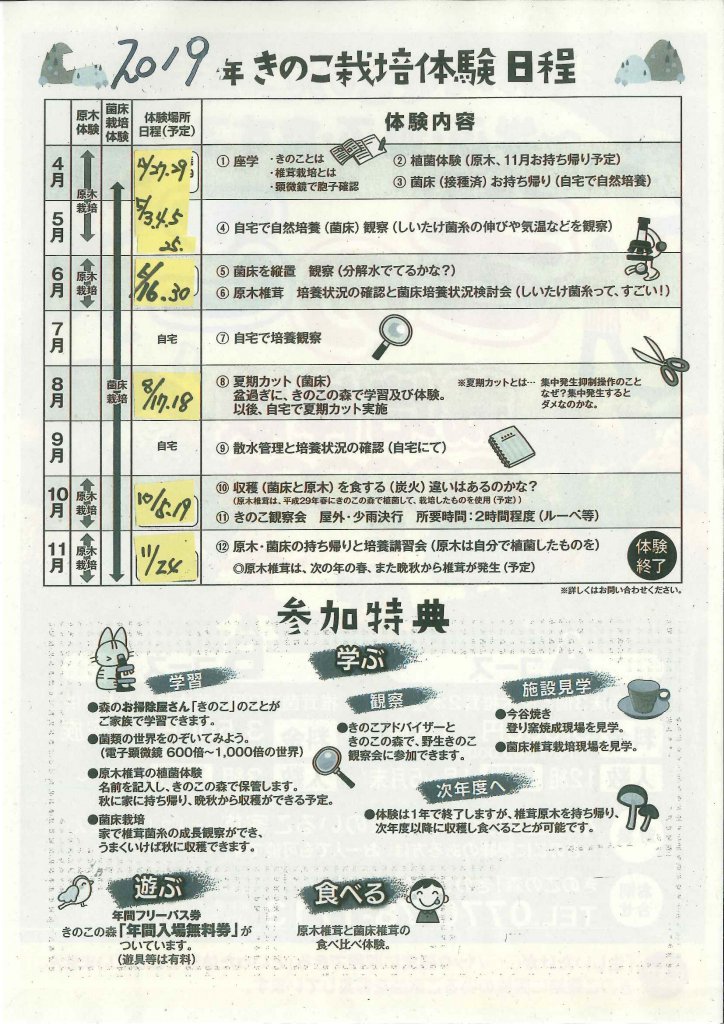 2019年 きのこ栽培体験日程
原木体験 菌床栽培体験 体験場所日程(予定) 体験内容
4月
原木栽培
4/27.29
① 座学 ・きのことは
・椎茸栽培とは
・顕微鏡で胞子確認
② 植菌体験(原木、11月お持ち帰り予定)
③ 菌床(接種済)お持ち帰り(自宅で自然培養)
5月
5/3.4.5
25.
④ 自宅で自然培養(菌床)観察(しいたけ菌糸の伸びや気温などを観察)
6月
原木栽培
6/16.30
⑤ 菌床を縦置 観察(分解水でてるかな?)
⑥ 原木椎茸 培養状況の確認と菌床培養状況検討会(しいたけ菌糸って、すごい!)
7月
自宅
⑦ 自宅で培養観察
8月
菌床栽培
8/17.18
⑧ 夏期カット(菌床)
盆過ぎに、きのこの森で学習及び体験。
以後、自宅で夏期カット実施
※夏期カットとは… 集中発生抑制操作のこと
なぜ?集中発生すると
ダメなのかな。
9月
自宅
⑨ 散水管理と培養状況の確認(自宅にて)
10月
原木栽培
10/5.19
⑩ 収穫(菌床と原木)を食する(炭火)違いはあるのかな?
(原木椎茸は、平成29年春にきのこの森で植菌して、栽培したものを使用(予定))
⑪ きのこ観察会 屋外・少雨決行 所要時間:2時間程度(ルーペ等)
11月
原木栽培
11/24
⑫ 原木・菌床の持ち帰りと培養講習会(原木は自分で植菌したものを)
◎原木椎茸は、次の年の春、また晩秋から椎茸が発生(予定)
体験終了
※詳しくはお問い合わせください。
参加特典
学ぶ
学習
●森のお掃除屋さん「きのこ」のことが
ご家族で学習できます。
●菌類の世界をのぞいてみよう。
(電子顕微鏡 600倍〜1,000倍の世界)
●原木椎茸の植菌体験
名前を記入し、きのこの森で保管します。
秋に家に持ち帰り、晩秋から収穫ができる予定。
●菌床栽培
家で椎茸菌糸の成長観察ができ、
うまくいけば秋に収穫できます。
観察
●きのこアドバイザーと
きのこの森で、野生きのこ
観察会に参加できます。
施設見学
●今谷焼き
登り窯焼成現場を見学。
●菌床椎茸栽培現場を見学。
次年度へ
●体験は1年で終了しますが、椎茸原木を持ち帰り、
次年度以降に収穫し食べることが可能です。
遊ぶ
年間フリーパス券
きのこの森「年間入場無料券」が
ついています。
(遊具等は有料)
食べる
原木椎茸と菌床椎茸の
食べ比べ体験。